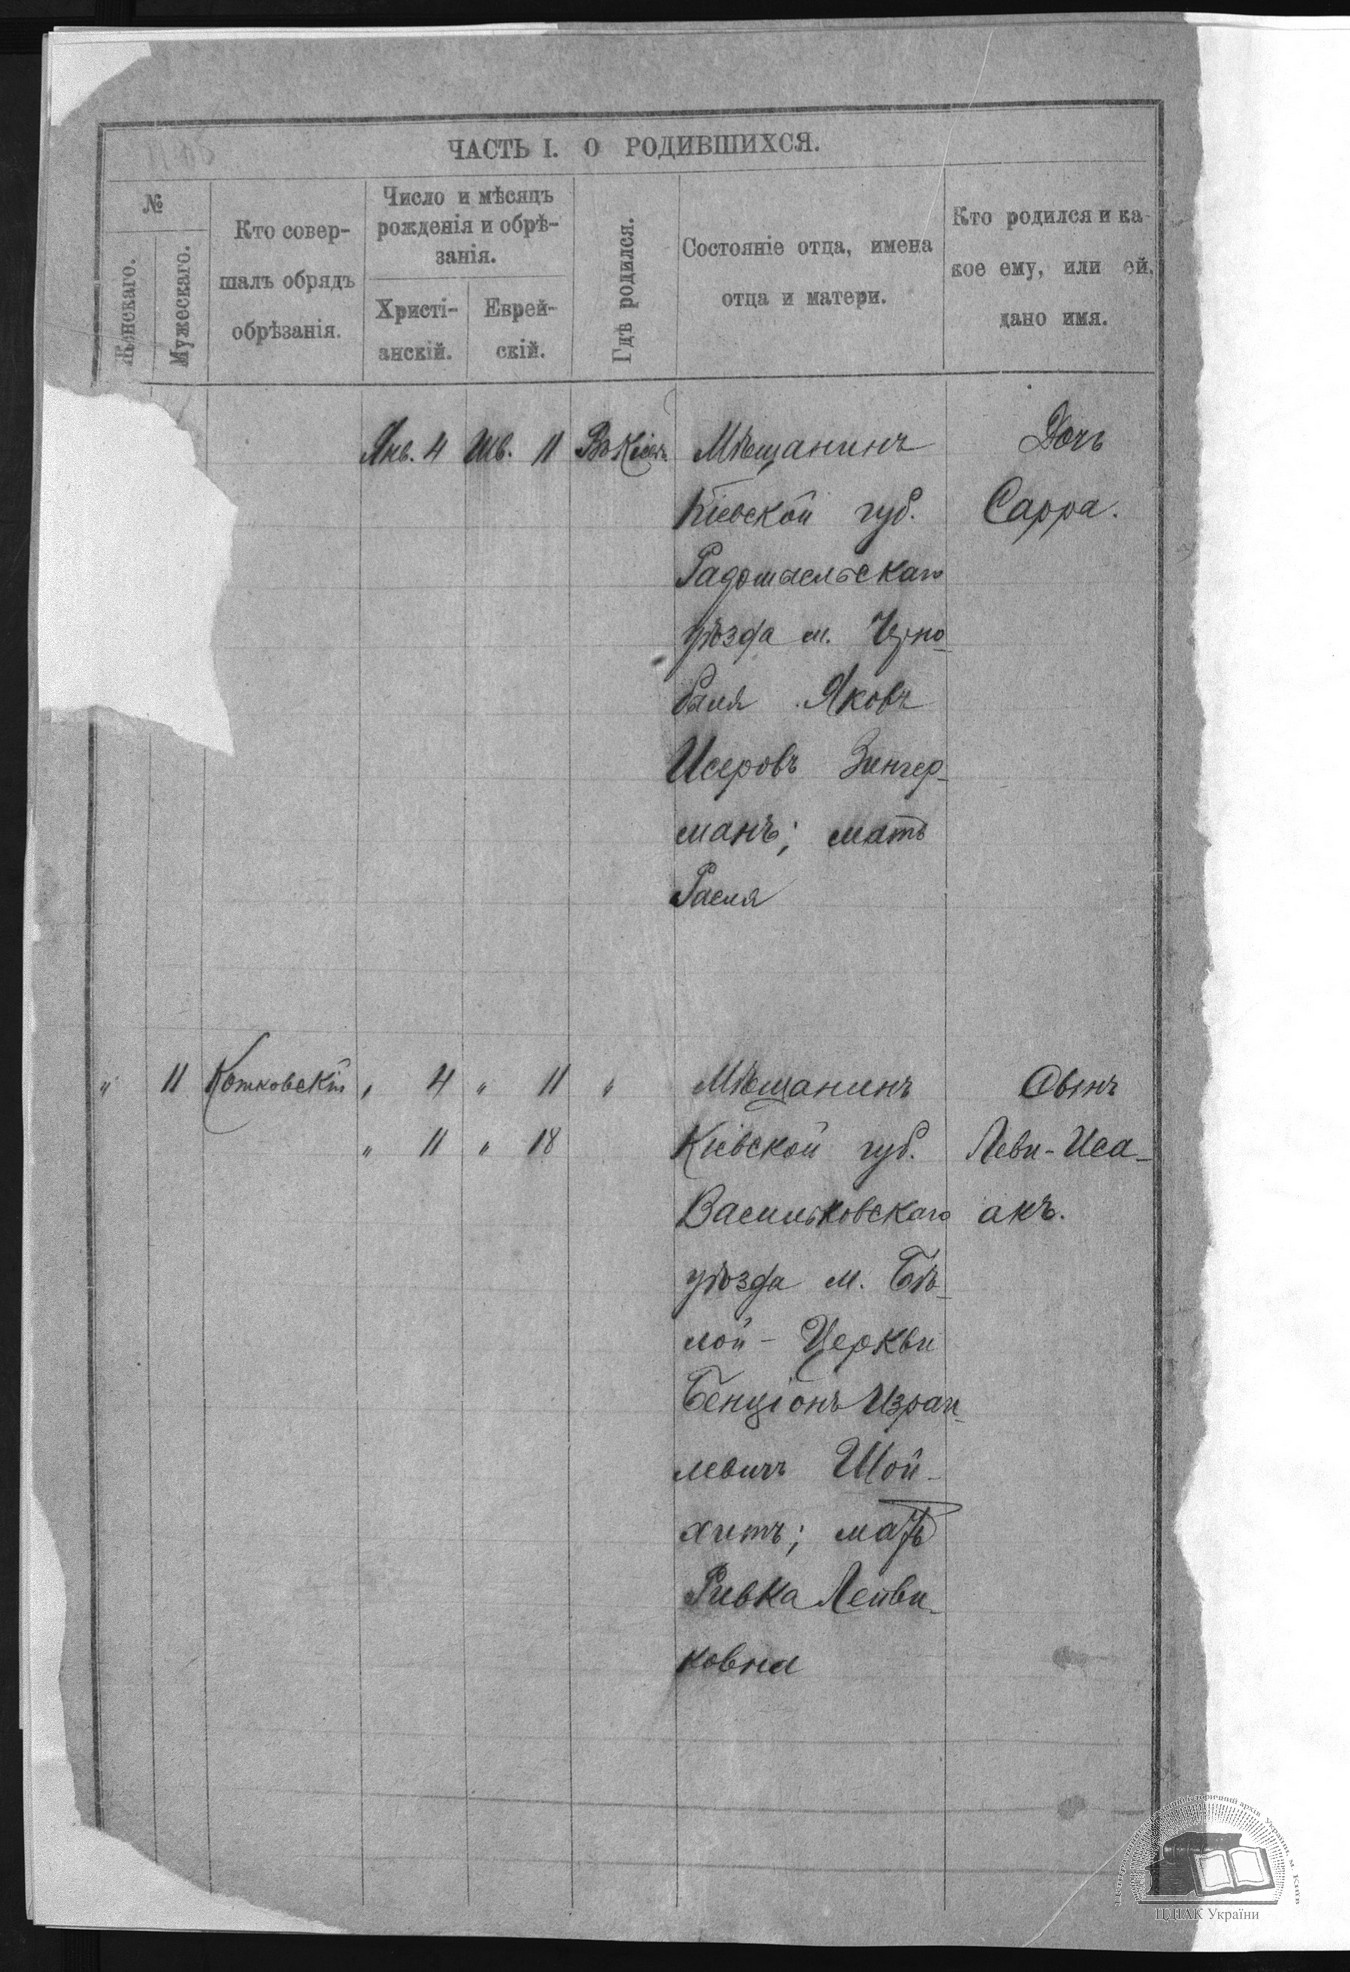 ЧАСТЬ I. О РОДИВШИХСЯ.
№
Женскаго.
Мужескаго.
Кто совер-
шалъ обрядъ
обрѣзанія.
Число и мѣсяцъ
рожденія и обрѣ-
занія.
Христі-
анскій.
Еврей-
скій.
Гдѣ родился.
Состояніе отца, имена
отца и матери.
Кто родился и ка-
кое ему, или ей,
дано имя.
Янв. 4 Шв. 11 Въ Кіевѣ Мѣщанинъ Дочь
Кіевской губ. Сарра.
Радомысльскаго
уѣзда м. Черно-
быля Яковъ
Исеровъ Зингер-
манъ; мать
Расля
" 11 Котковскій " 4 " 11 " Мѣщанинъ Сынъ
" 11 " 18 Кіевской губ. Леви-Иса-
Васильковскаго акъ.
уѣзда м. Бѣ-
лой-Церкви
Бенціонъ Израи-
левичъ Шой-
хитъ; мать
Ривка Лейви-
ковна
ЦДІАК України